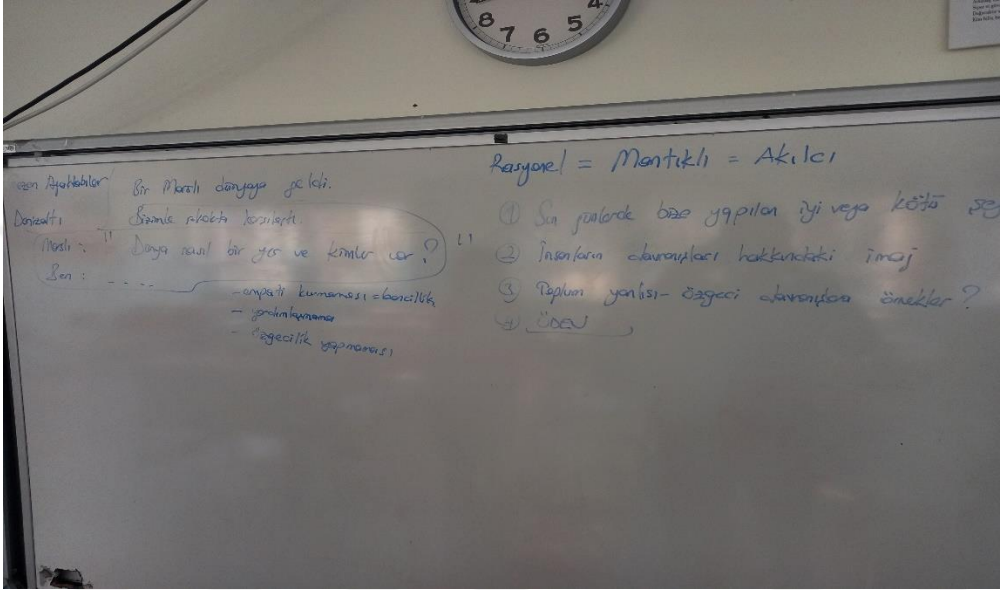 8 7 6 5 4
Ayakkabılar
Denizaltı
Bir Marslı dünyaya geldi.
Bizimle sokakta karşılaştı.
Marslı : " Dünya nasıl bir yer ve kimler var? "
Ben : ....
- empati kurmaması
- yardımlaşmama
- özgecilik yapmaması
Rasyonel = Mantıklı = Akılcı
① Son günlerde bize yapılan iyi veya kötü şey
② İnsanların davranışları hakkındaki imaj
③ Toplum yanlısı - özgeci davranışlara örnekler ?
④ ÖDEV